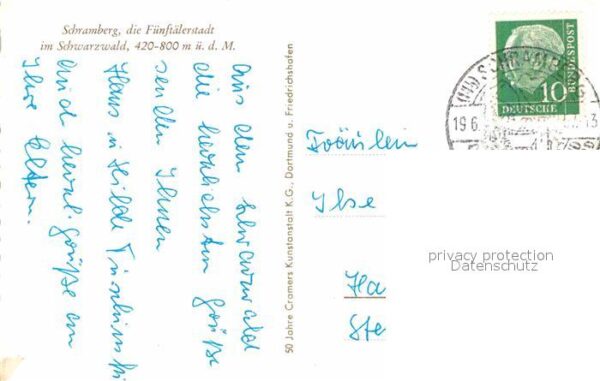 Schramberg, die Fünftälerstadt
im Schwarzwald, 420-800 m ü. d. M.
Aus dem Schwarzwald
die herzlichsten Grüße
senden Ihnen
Hans u. Hilde
Auch herzl. Grüße an
Ihre Eltern.
50 Jahre Cramers Kunstanstalt K.G., Dortmund u. Friedrichshafen
10
DEUTSCHE
BUNDESPOST
SCHRAMBERG
19.6.
13
Fräulein
Ilse
Ha
Ste
privacy protection
Datenschutz